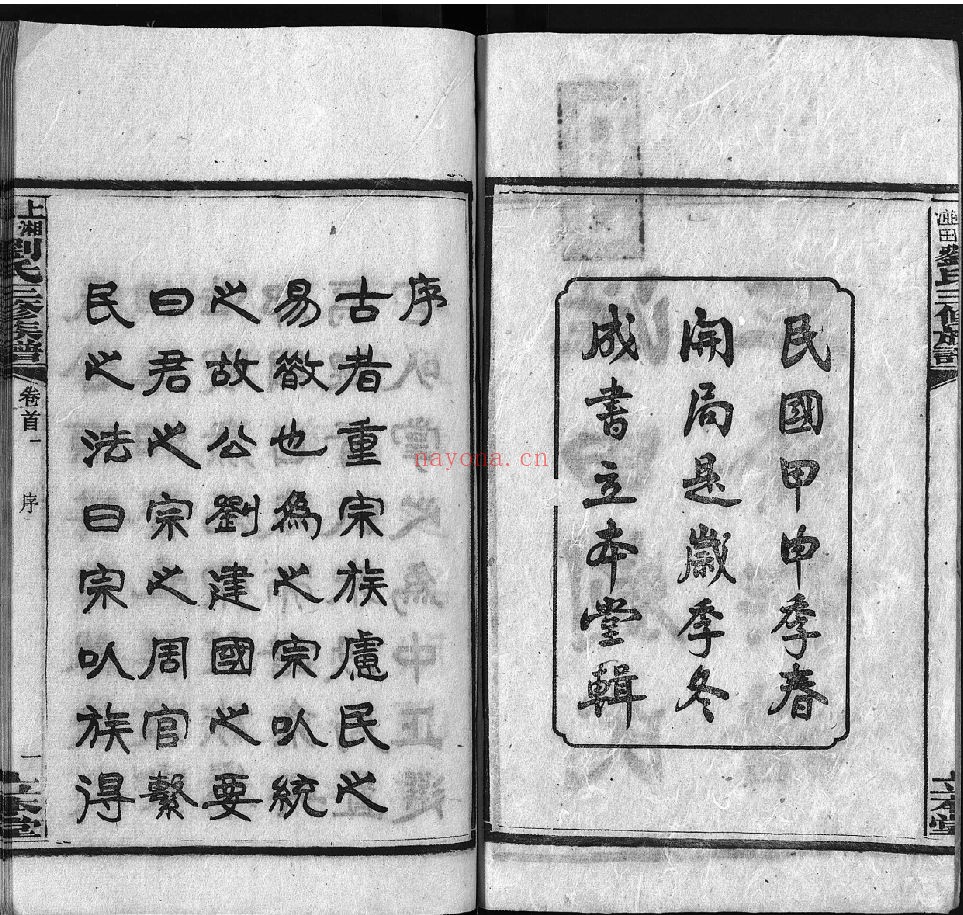 蓮田劉氏三修族譜
立本堂
民國甲申季春
開局是歲季冬
成書立本堂輯
序
古者重宗族慮民之
易散也為之宗以統
之故公劉建國之要
曰君之宗之周官繫
民之法曰宗以族得
上湘劉氏三修族譜
卷首一
序
一
立本堂
nayona.cn